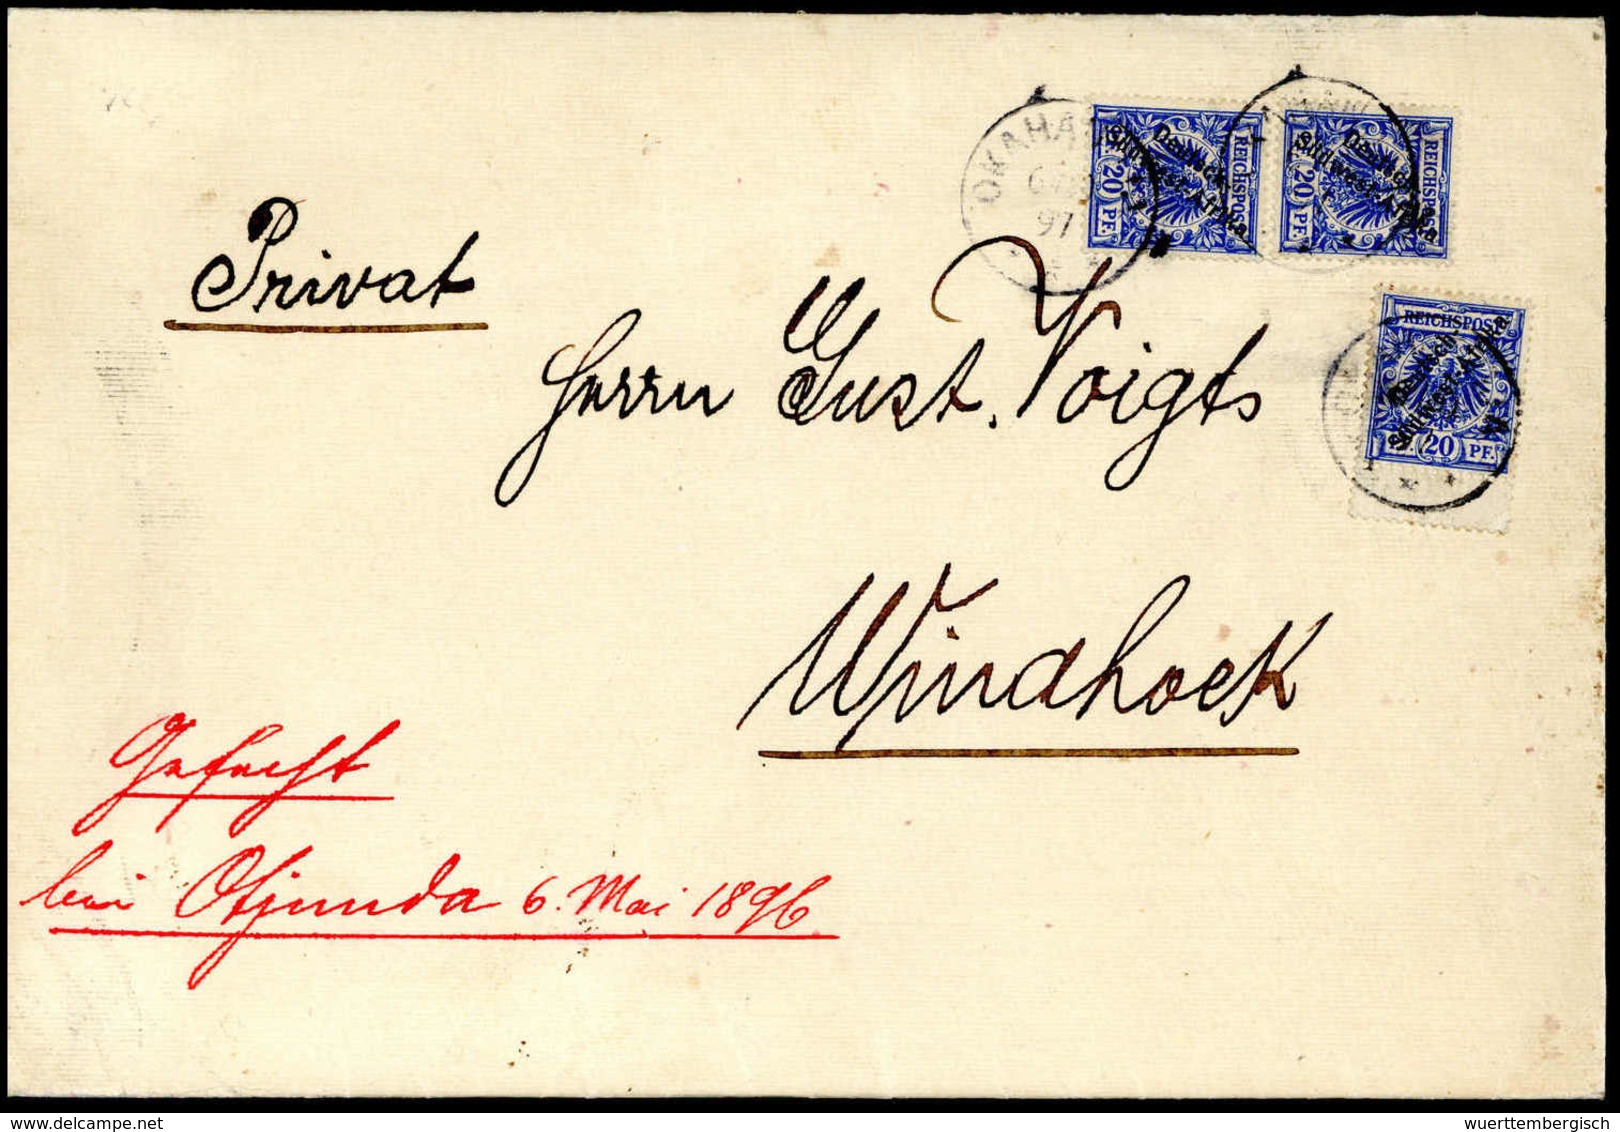 Privat
Herrn Gust. Voigts
Windhoek
Gefecht
bei Otjunda 6. Mai 1896
REICHSPOST
20 PF.
Deutsch-
Südwest-Afrika
REICHSPOST
20 PF.
Deutsch-
Südwest-Afrika
REICHSPOST
20 PF.
Deutsch-
Südwest-Afrika
OKAHA
97
delcampe.net
wuerttembergisch